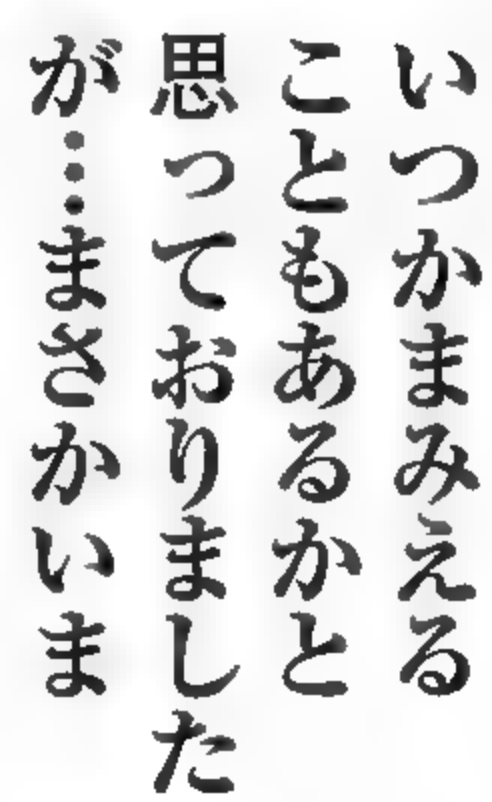 いつかまみえる
こともあるかと
思っておりました
が…まさかいま